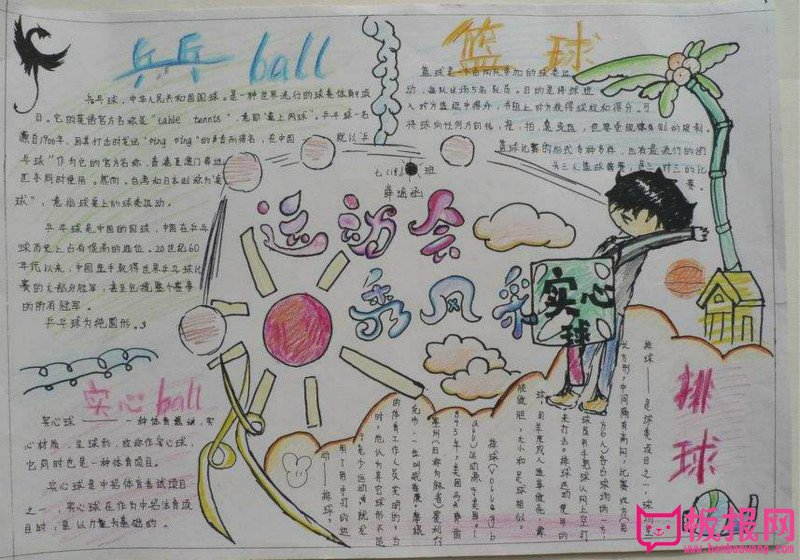 乒乓ball
乒乓球,中华人民共和国国球。是一种世界流行的球类体育项
目。它的英语官方名称是"table tennis",意即"桌上网球"。乒乓球一名
源自1900年,因其打击时发出"Ping Pang"的声音而得名,在中国就以"乒
乓球"作为它的官方名称,香港及澳门等地
区亦同时使用。然而,台湾和日本则称为"桌
球",意指桌上的球类运动。
乒乓球是中国的国球,中国在乒乓
球历史上占有很高的地位。20世纪60
年代以来,中国选手取得世界乒乓球比
赛的大部分冠军,甚至包揽整个赛事
的所有冠军。
乒乓球为纯圆形。
篮球
球队出场5名队员。目的是将球进
入对方篮框中得分,并阻止对方获得球权和得分。可
将球向任何方向传、投、拍
篮球比赛的形式多种多样,也有最流行的街
头三人篮球赛,是三对三的比
赛。
七(18)班
运动会
秀风采
实心
球
实心ball
实心球——一种体育器械,实
心材质,呈球形,故称作实心球,
它同时也是一种体育项目。
实心球是中招体育考试项目
之一,实心球在作为中招体育项
目时,是以力量为基础的。
排球
排球——是球类项目之一,球场呈
长方形,中间隔有高网,比赛双方(每
方6人)各占球场的一方
球员用手把球从网上空打
来打去。排球运动使用的
球,用羊皮或人造革做壳,橡
胶做胆,大小和足球相似。
排球(Volleyb
all)运动源于美国。1
895年,美国马萨诸塞
的体育工作人员发明的。当
时,他认为篮球
动——排球。
板报网
www.banbaowang.com